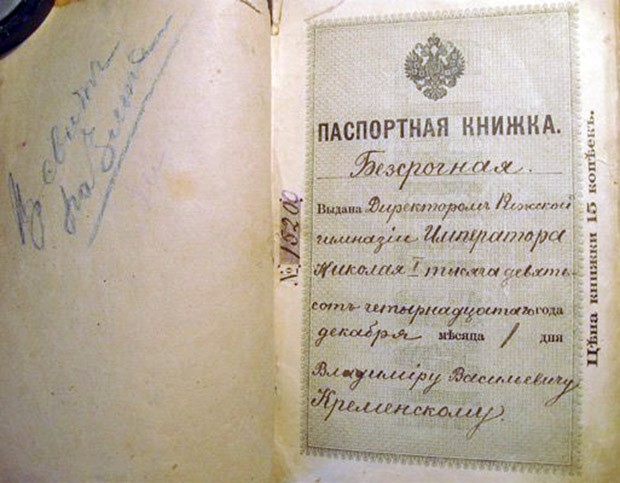 ПАСПОРТНАЯ КНИЖКА.
Безсрочная.
Выдана Директоромъ Рижской
гимназіи Императора
Николая I тысяча девять
сотъ четырнадцатаго года
декабря мѣсяца 1 дня
Владиміру Васильевичу
Кременскому.
№ 15200
Цѣна книжки 15 копѣекъ.